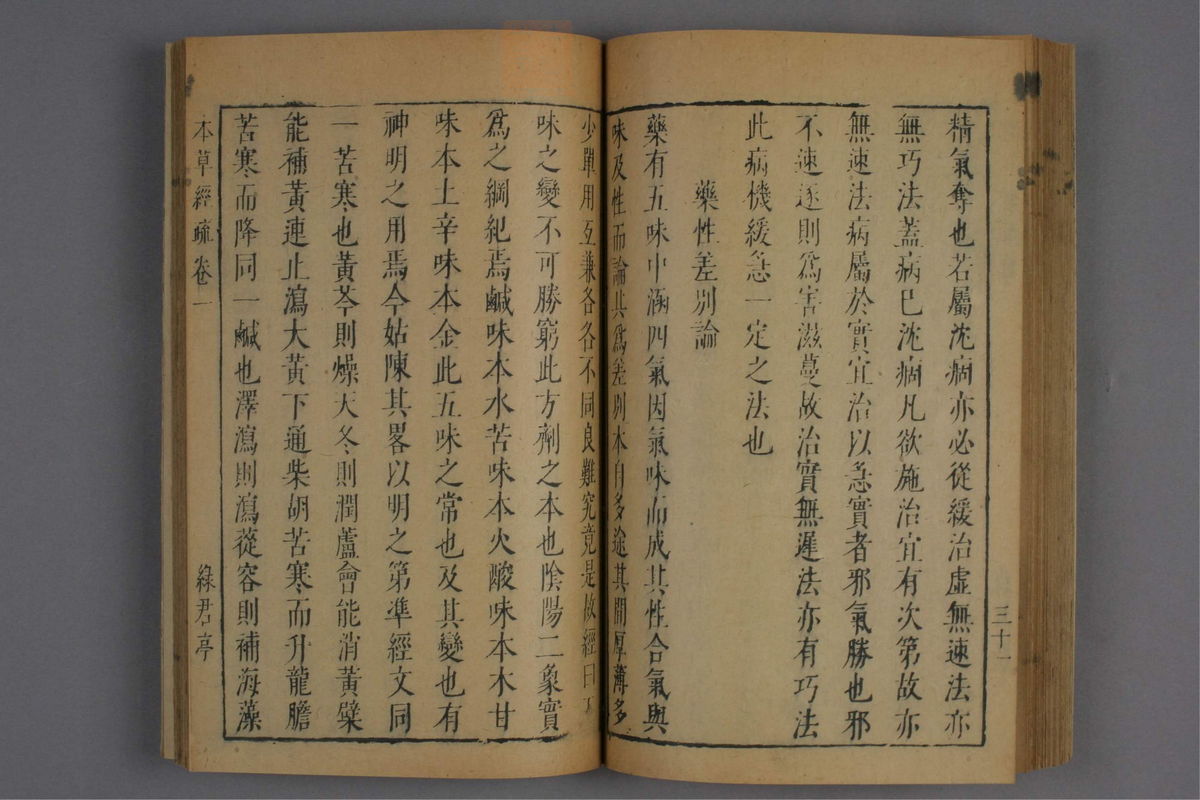 三十一
精氣奪也若屬沈痼亦必從緩治虛無速法亦
無巧法蓋病已沈痼凡欲施治宜有次第故亦
無速法病屬於實宜治以急實者邪氣勝也邪
不速逐則爲害滋蔓故治實無遲法亦有巧法
此病機緩急一定之法也
藥性差別論
藥有五味中涵四氣因氣味而成其性合氣與
味及性而論其爲差別本自多途其間厚薄多
少單用互兼各各不同良難究竟是故經曰五
味之變不可勝窮此方劑之本也陰陽二象實
爲之綱紀焉鹹味本水苦味本火酸味本木甘
味本土辛味本金此五味之常也及其變也有
神明之用焉今姑陳其畧以明之第準經文同
一苦寒也黃芩則燥天冬則潤蘆會能消黃檗
能補黃連止瀉大黃下通柴胡苦寒而升龍膽
苦寒而降同一鹹也澤瀉則瀉蓯容則補海藻
本草經疏卷一
綠君亭